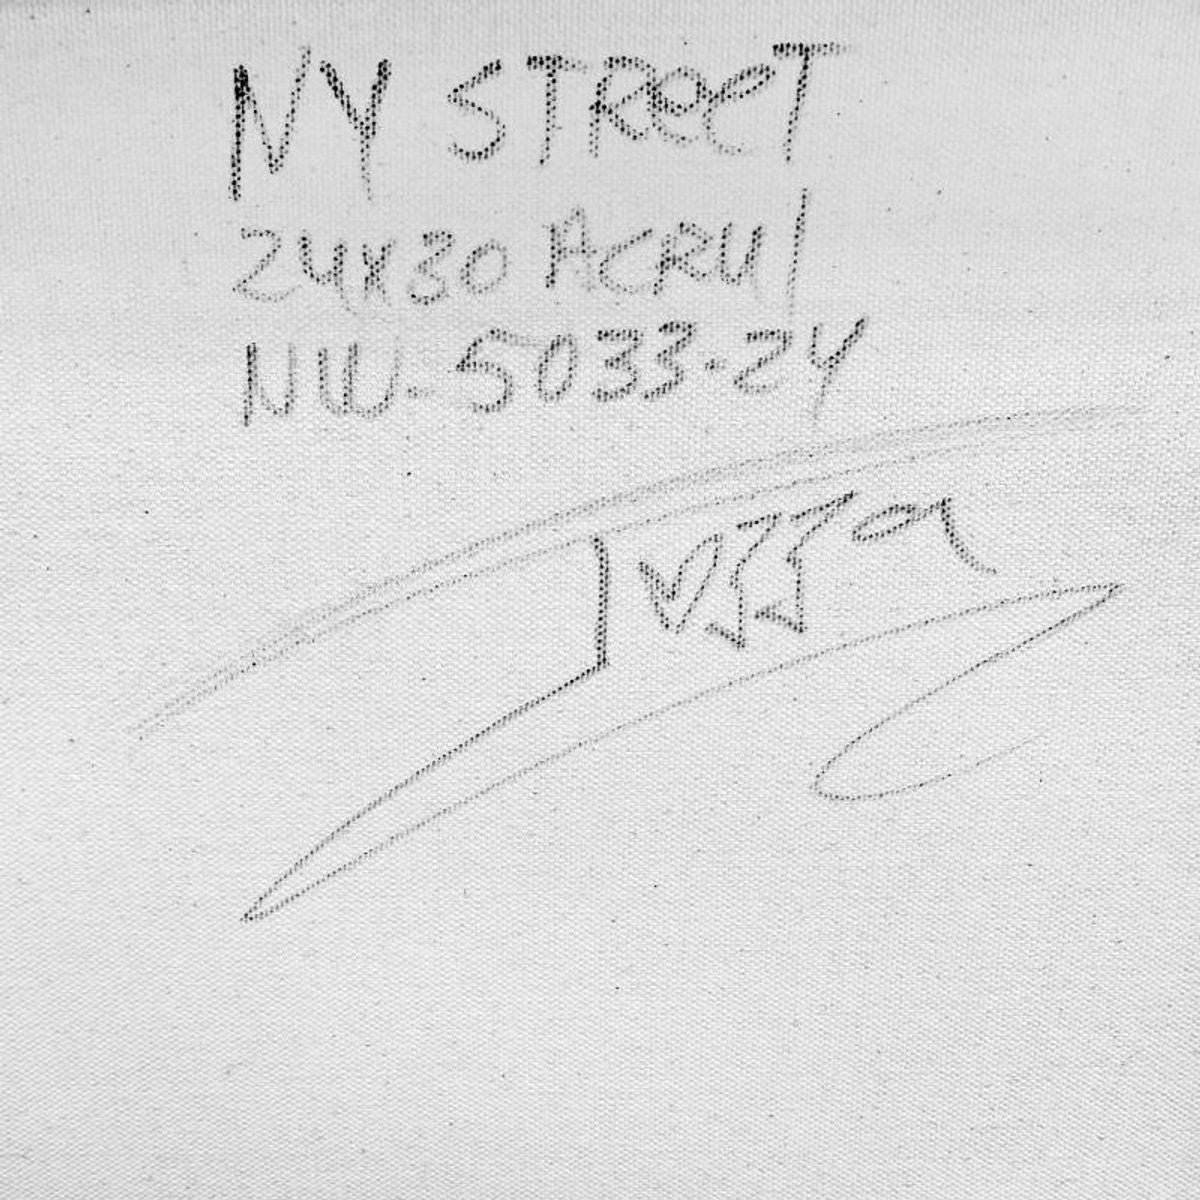 NY STReeT
24x30 ACRYl
NW-5033-24